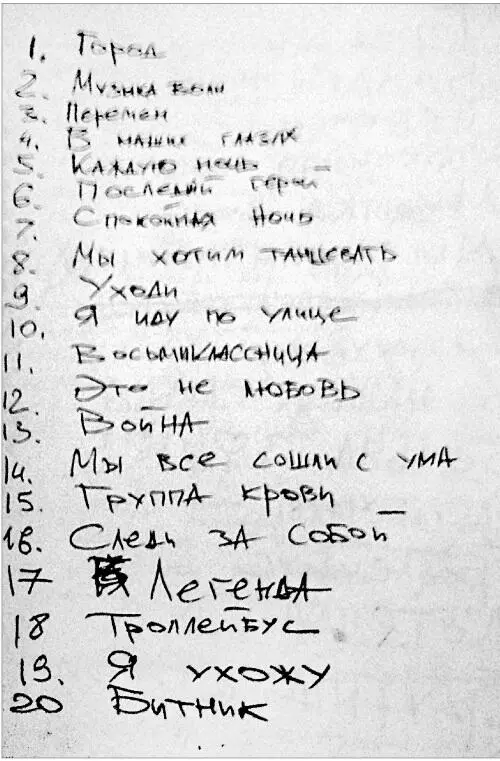 1. Город
2. Музыка волн
3. Перемен
4. В наших глазах
5. Каждую ночь
6. Последний герой
7. Спокойная ночь
8. Мы хотим танцевать
9. Уходи
10. Я иду по улице
11. Восьмиклассница
12. Это не любовь
13. Война
14. Мы все сошли с ума
15. Группа крови
16. Следи за собой
17 Легенда
18 Троллейбус
19. Я ухожу
20 Битник